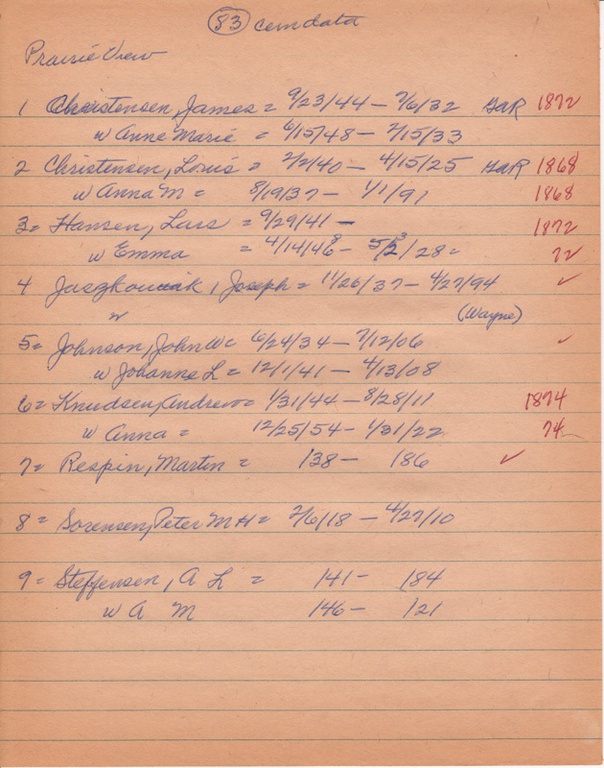 83 cem data
Prairie View
1 Christensen, James = 9/23/44 – 7/6/32 GAR 1872
w Anne Marie = 6/15/48 – 2/15/33
2 Christensen, Louis = 2/2/40 – 4/15/25 GAR 1868
w Anna M = 8/19/37 – 1/1/91 1868
3 = Hansen, Lars = 9/29/41 – 1872
w Emma = 4/14/46 – /28 72
4 Juszkowiak, Joseph = 11/26/37 – 4/27/94 ✓
w (Wayne)
5 = Johnson, John W = 6/24/34 – 7/12/06 ✓
w Johanne L = 12/1/41 – 4/13/08
6 = Knudsen, Andrew = 1/31/44 – 8/28/11 1874
w Anna = 12/25/54 – 1/31/22 74
7 = Respin, Martin = 138 – 186 ✓
8 = Sorensen, Peter M H = 2/6/18 – 4/27/10
9 = Steffensen, A L = 141 – 184
w A M 146 – 121